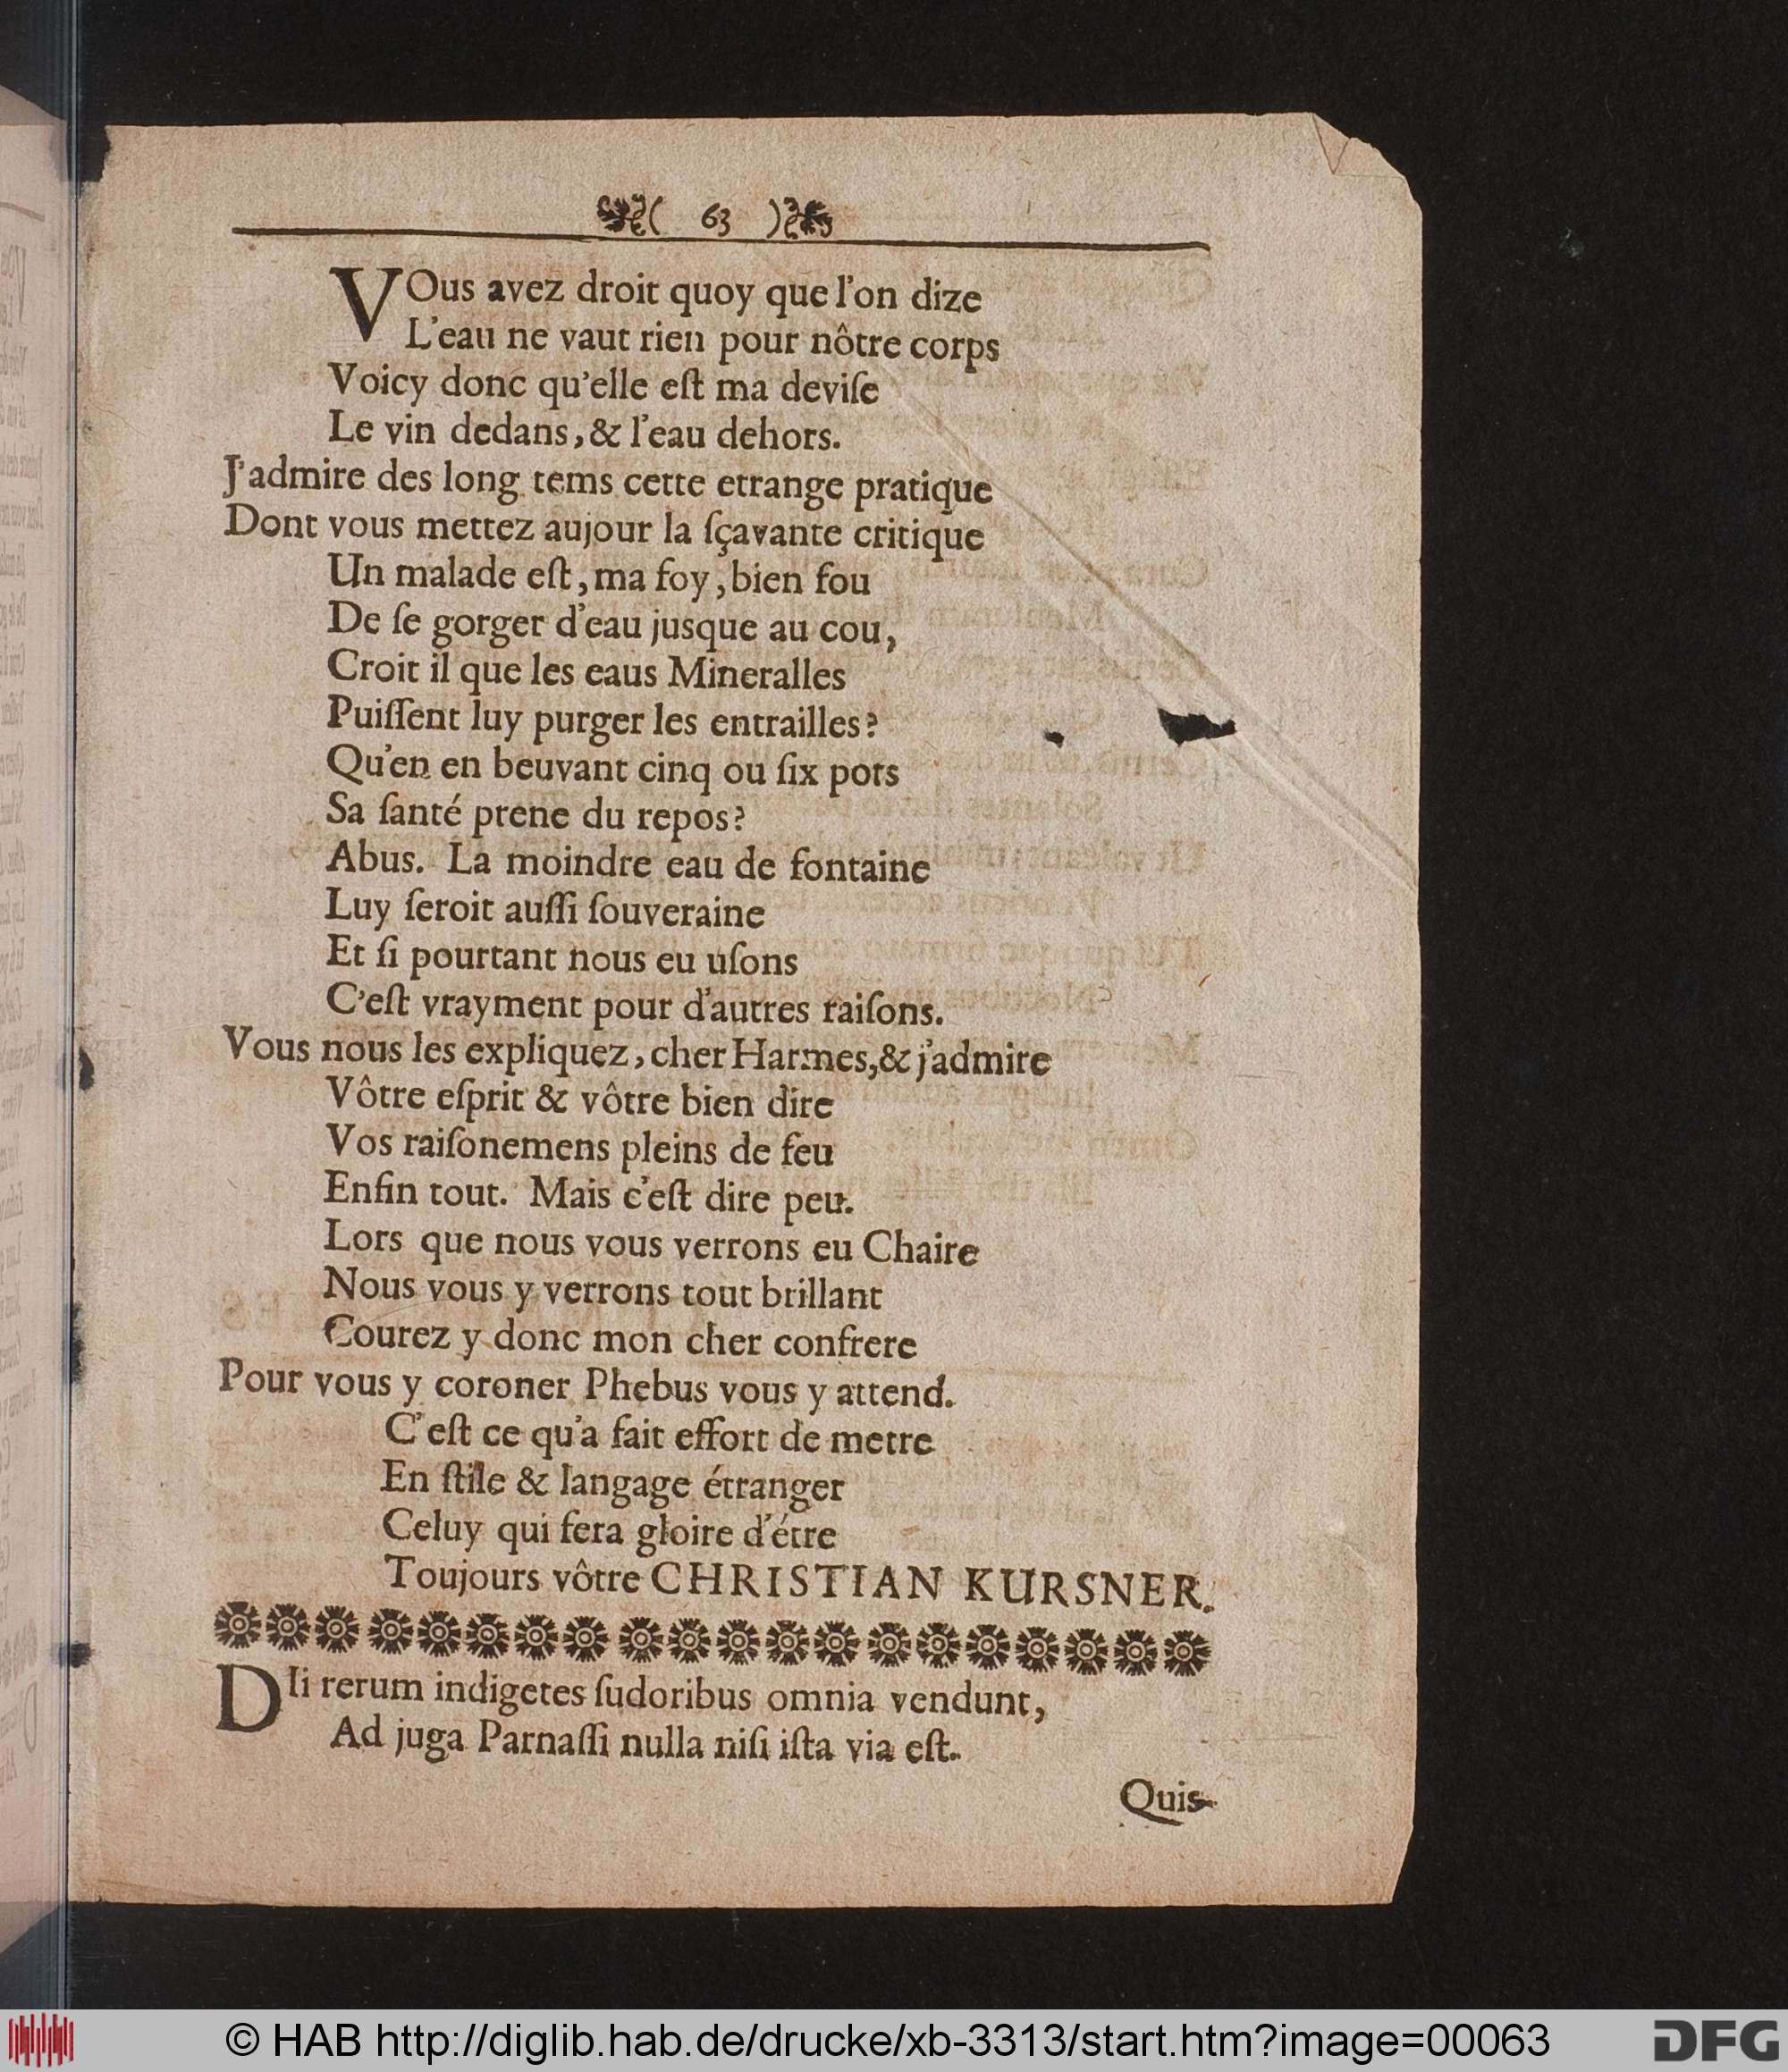 ( 63 )
VOus avez droit quoy que l'on dize
L'eau ne vaut rien pour nôtre corps
Voicy donc qu'elle eſt ma deviſe
Le vin dedans, & l'eau dehors.
J'admire des long tems cette etrange pratique
Dont vous mettez aujour la ſçavante critique
Un malade eſt, ma foy, bien fou
De ſe gorger d'eau jusque au cou,
Croit il que les eaus Mineralles
Puiſſent luy purger les entrailles?
Qu'en en beuvant cinq ou ſix pots
Sa ſanté prene du repos?
Abus. La moindre eau de fontaine
Luy ſeroit auſſi ſouveraine
Et ſi pourtant nous eu uſons
C'eſt vrayment pour d'autres raiſons.
Vous nous les expliquez, cher Harmes, & j'admire
Vôtre eſprit & vôtre bien dire
Vos raiſonemens pleins de feu
Enfin tout. Mais c'eſt dire peu.
Lors que nous vous verrons eu Chaire
Nous vous y verrons tout brillant
Courez y donc mon cher confrere
Pour vous y coroner Phebus vous y attend.
C'eſt ce qu'a fait effort de metre
En ſtile & langage étranger
Celuy qui fera gloire d'étre
Toujours vôtre CHRISTIAN KURSNER.
DIi rerum indigetes ſudoribus omnia vendunt,
Ad juga Parnaſſi nulla niſi iſta via eſt.
Quis-
© HAB http://diglib.hab.de/drucke/xb-3313/start.htm?image=00063
DFG